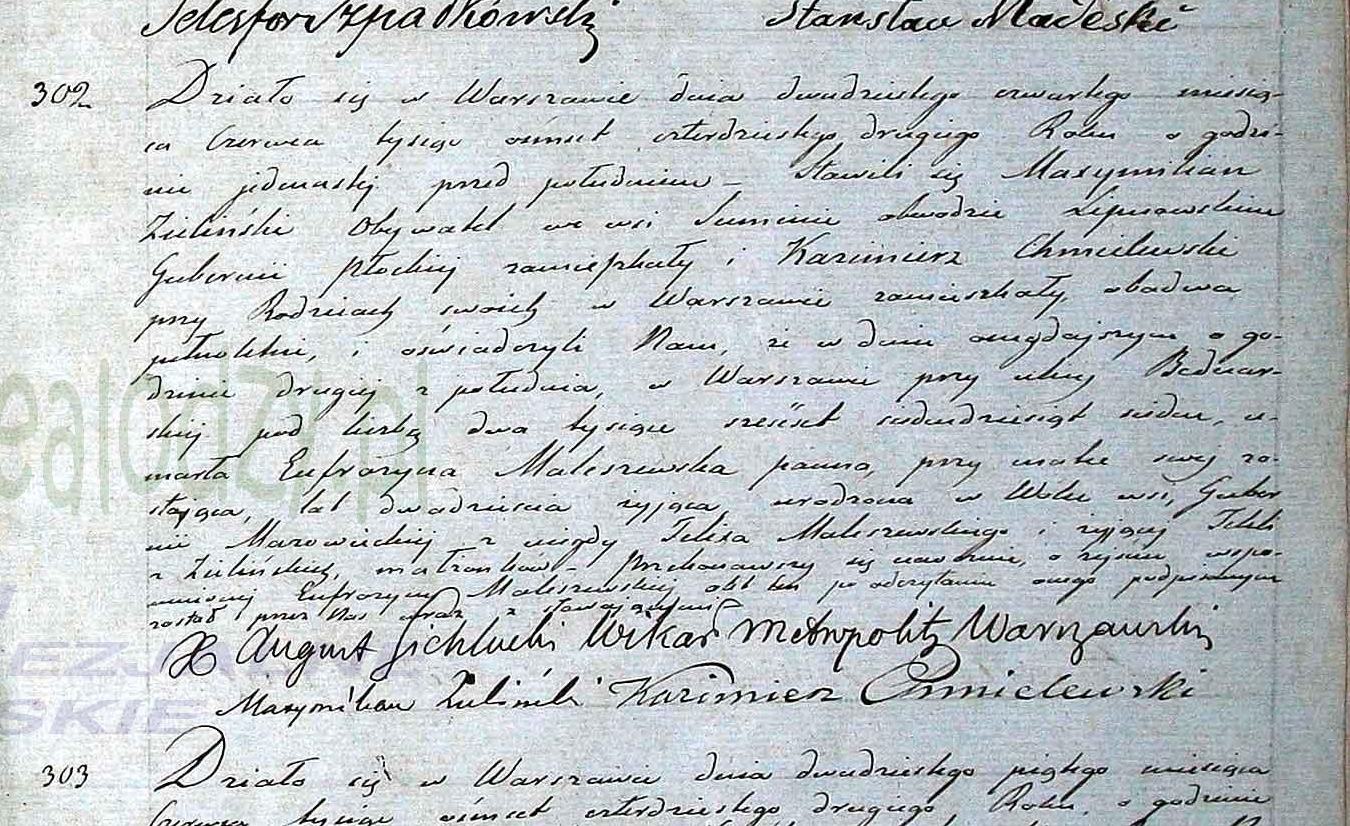 Telesfor Szpadkowski Stanisław Madeski
302 Działo się w Warszawie dnia dwudziestego czwartego miesią-
ca Czerwca tysiąc ośmset czterdziestego drugiego Roku o godzi-
nie jedenastej przed południem – Stawili się Maxymilian
Zieliński Obywatel we wsi Suminie obwodzie Lipnowskim
Gubernii Płockiej zamieszkały i Kazimierz Chmielewski
przy Rodzicach swoich w Warszawie zamieszkały, obadwa
pełnoletni, i oświadczyli Nam, że w dniu onegdajszym o go-
dzinie drugiej z południa, w Warszawie przy ulicy Bednar-
skiej pod liczbą dwa tysiące sześćset siedmdziesiąt siedm, u-
marła Eufrozyna Maleszewska panna, przy matce swej zo-
stająca, lat dwadzieścia żyjąca, urodzona w Woli wsi, Guber
nii Mazowieckiej z niegdy Felixa Maleszewskiego i żyjącej Tekli
z Zielińskich, małżonków – Przekonawszy się naocznie, o zejściu wspo-
mnionej Eufrozyny Maleszewskiej akt ten po odczytaniu onego podpisanym
został przez Nas wraz z stawającymi
X August Wikar Metropolity Warszawski
Maxymilian Zieliński Kazimierz Chmielewski
303 Działo się w Warszawie dnia dwudziestego piątego miesiąca
Czerwca tysiąc ośmset czterdziestego drugiego Roku, o godzinie
ealodzy.pl
EZJ
SKIE